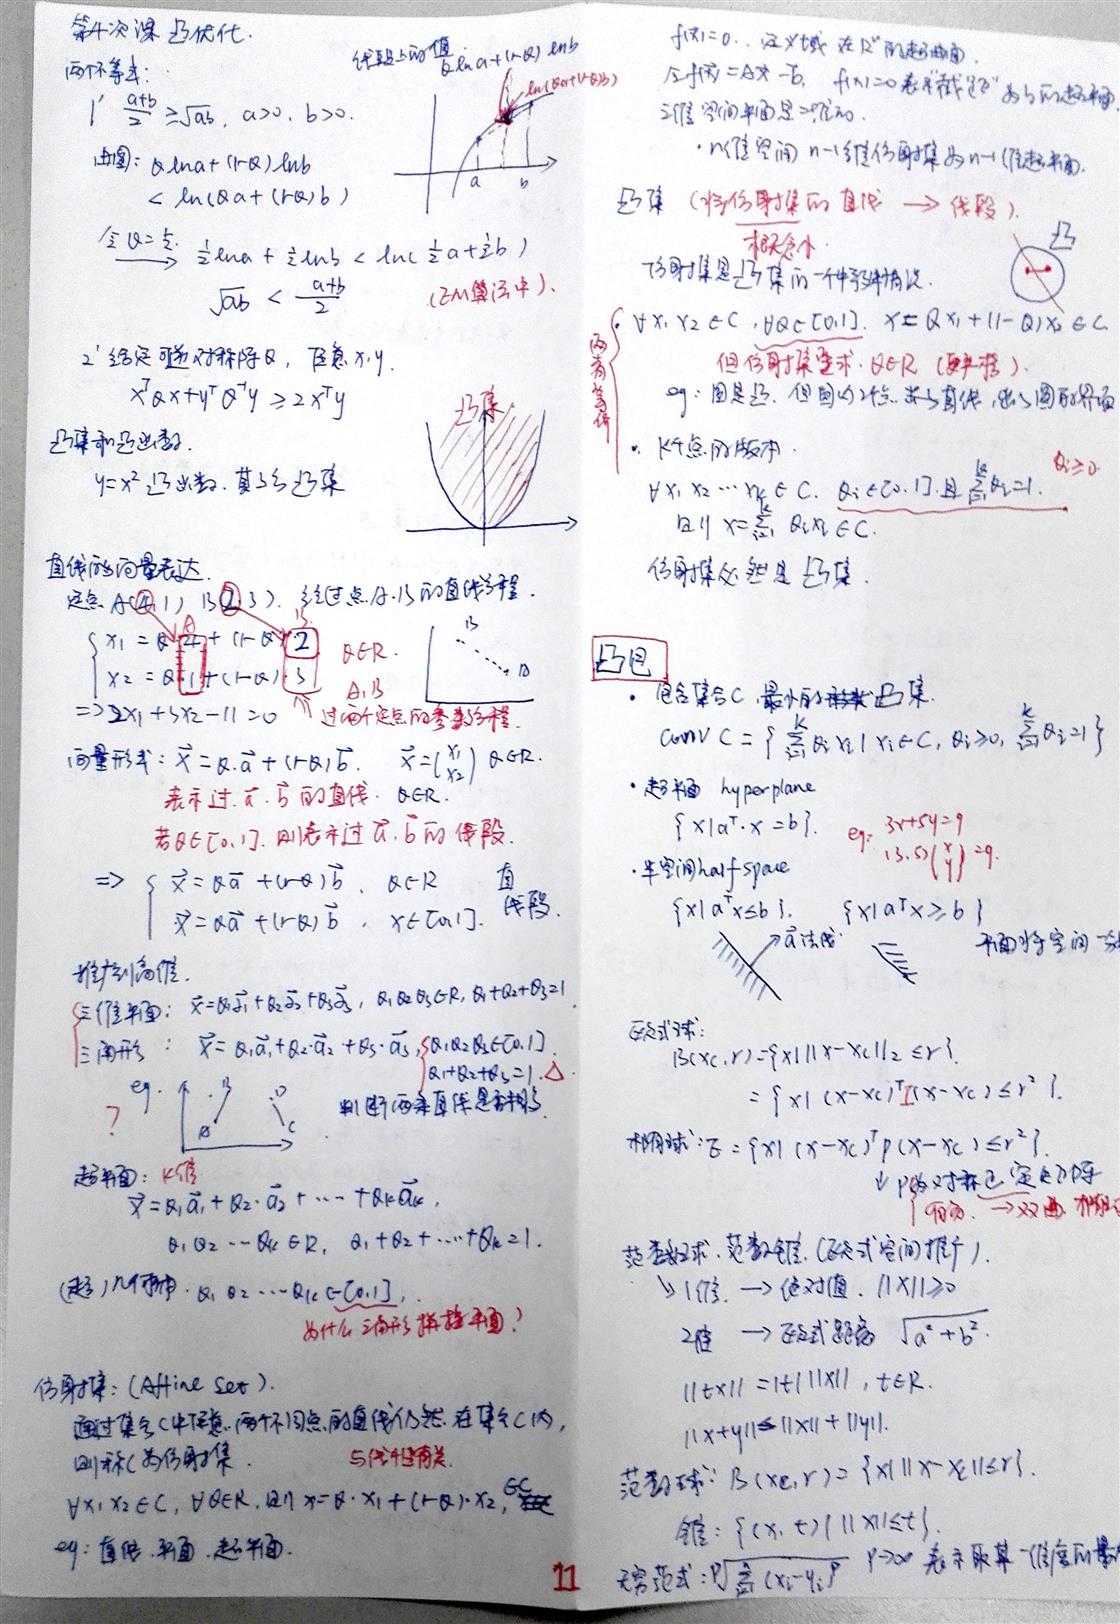 第4次课 凸优化.
两个不等式:
1° a+b/2 ≥ √ab, a>0, b>0.
由图: θlna+(1-θ)lnb
< ln(θa+(1-θ)b)
令θ=½. → ½lna+½lnb < ln(½a+½b)
√ab < a+b/2 (EM算法中).
线段上的值 θlna+(1-θ)lnb
ln(θa+(1-θ)b)
a b
2° 给定可逆对称阵Q, 任意x,y
xᵀQx+yᵀQ⁻¹y ≥ 2xᵀy
凸集和凸函数.
y=x² 凸函数.
凸集
直线的向量表达.
定点 A(4,1) B(2,3). 经过点A.B的直线方程.
A B
x₁ = θ·4+(1-θ)·2
x₂ = θ·1+(1-θ)·3
θ∈R.
=> 2x₁+3x₂-11=0
A,B
过两个定点的参数方程.
B A
向量形式: x⃗=θ·a⃗+(1-θ)b⃗. x⃗=(x₁ x₂) θ∈R.
表示过a⃗.b⃗的直线. θ∈R.
若θ∈[0,1]. 则表示过a⃗.b⃗的线段.
=> { x⃗=θa⃗+(1-θ)b⃗, θ∈R 直
x⃗=θa⃗+(1-θ)b⃗, x∈[0,1]. 线段.
推广到高维.
三维平面: x⃗=θ₁a⃗₁+θ₂a⃗₂+θ₃a⃗₃, θ₁θ₂θ₃∈R, θ₁+θ₂+θ₃=1
三角形: x⃗=θ₁a⃗₁+θ₂·a⃗₂+θ₃·a⃗₃, { θ₁θ₂θ₃∈[0,1].
θ₁+θ₂+θ₃=1. △
eg. B D
? A C
判断两条直线是否相交.
超平面: K维
x⃗=θ₁a⃗₁+θ₂·a⃗₂+⋯+θₖa⃗ₖ,
θ₁θ₂⋯θₖ∈R, θ₁+θ₂+⋯+θₖ=1.
(超)几何体. θ₁θ₂⋯θₖ∈[0,1],
为什么三角形 平面?
仿射集: (Affine set).
通过集合C中任意两个不同点的直线仍然在集合C内,
则称C为仿射集. 与线性有关.
∀x₁x₂∈C, ∀θ∈R, 则x=θ·x₁+(1-θ)·x₂, ∈C
eg: 直线.平面.超平面.
11
f(x)=0.. 定义域在Rⁿ的超曲面.
令f(x)=Ax-b, f(x)=0表示"截距"为b的超平面
三维空间平面是二维的.
·n维空间 n-1维仿射集为n-1维超平面.
凸集 (将仿射集的直线 → 线段).
概念小.
凸
仿射集是凸集的一个特殊情况.
两者等价
· ∀x₁x₂∈C, ∀θ∈[0,1]. x=θx₁+(1-θ)x₂∈C.
但仿射集要求 θ∈R
eg: 圆是凸. 但圆内2点 直线, 出了圆的界面
· K个点的版本.
∀x₁x₂⋯xₖ∈C. θᵢ∈[0,1].且 Σθᵢ=1. θᵢ≥0
则 x=Σθᵢxᵢ∈C.
仿射集必然是凸集.
凸包
· 包含集合C 最小的凸集.
conv C = { Σθᵢxᵢ | xᵢ∈C, θᵢ≥0, Σθᵢ=1}
· 超平面 hyperplane
{x|aᵀ·x=b}. eg: 3x+5y=9
(3.5)(x y)=9.
· 半空间 half space
{x|aᵀx≤b}. {x|aᵀx≥b}
a⃗法线 平面将空间一分
欧式球:
B(xc,r)={x| ||x-xc||₂ ≤r}.
= {x| (x-xc)ᵀI(x-xc)≤r²}.
椭球: E={x| (x-xc)ᵀP(x-xc)≤r²}.
↓P为对称正定矩阵
有负. →双曲.
范数球.范数锥.(欧式空间推广).
↳1维 →绝对值. ||x||≥0
2维 →欧式距离 √a²+b².
||tx||=|t| ||x||, t∈R.
||x+y||≤||x||+||y||.
范数球: B(xc,r)={x| ||x-xc||≤r}.
锥: {(x,t)| ||x||≤t}.
无穷范式: ᵖ√Σ(xᵢ-yᵢ)ᵖ P→∞ 表示取某一维度的最